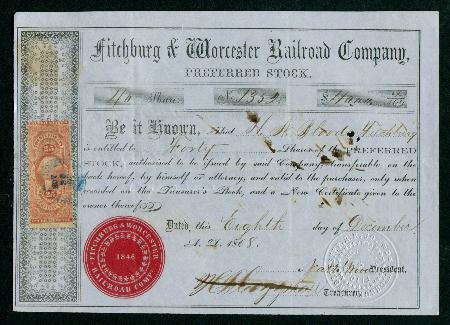 Fitchburg & Worcester Railroad Company,
PREFERRED STOCK.
40 Shares. No. 1352 $
Be it Known, That
Fitchburg
is entitled to Forty Shares of the PREFERRED
STOCK, authorized to be issued by said Company, transferable on the
back hereof, by himself or attorney, and valid to the purchaser, only when
recorded on the Treasurer's Book, and a New Certificate given to the
owner thereof.
Dated, this Eighth day of December
A. D. 1868.
President.
Treasurer.
FITCHBURG & WORCESTER
1846
RAILROAD COMPANY